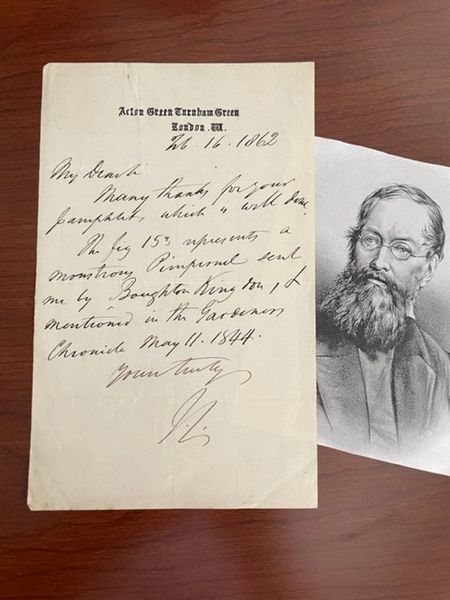 Acton Green Turnham Green
London. W.
Feb. 16. 1862
My Dear
Many thanks for your
pamphlet, which is well done.
The fig 15 represents a
monstrous Pimpernel sent
me by Boughton Kingdon, &
mentioned in the Gardeners
Chronicle May 11. 1844.
Yours truly
J. L.